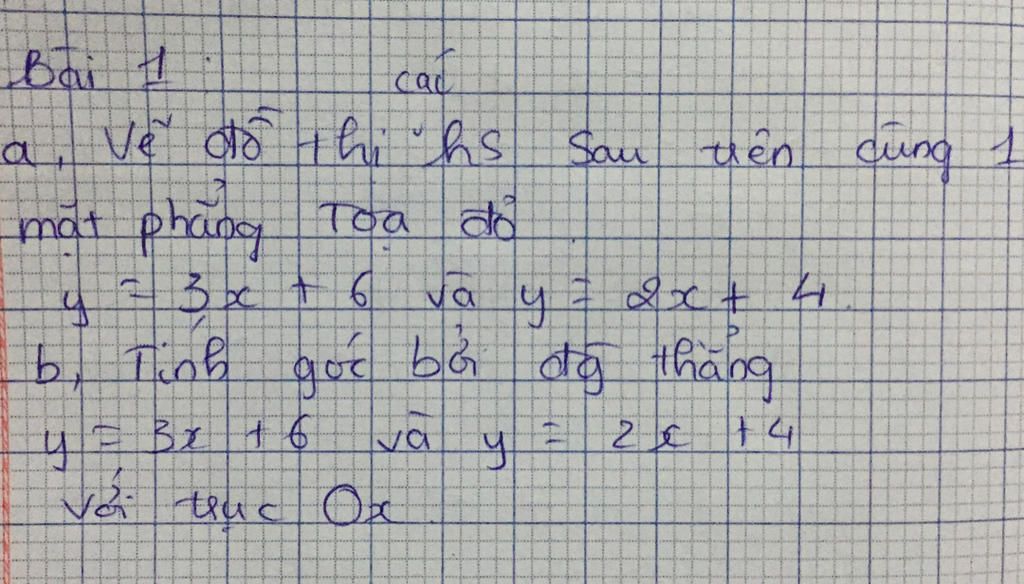 Bài 1 :
các
a, Vẽ đồ thị hs sau trên cùng 1
mặt phẳng Tọa độ
y = 3x + 6 và y = 2x + 4.
b, Tính góc bởi đg thẳng
y = 3x + 6 và y = 2x + 4
với trục Ox.